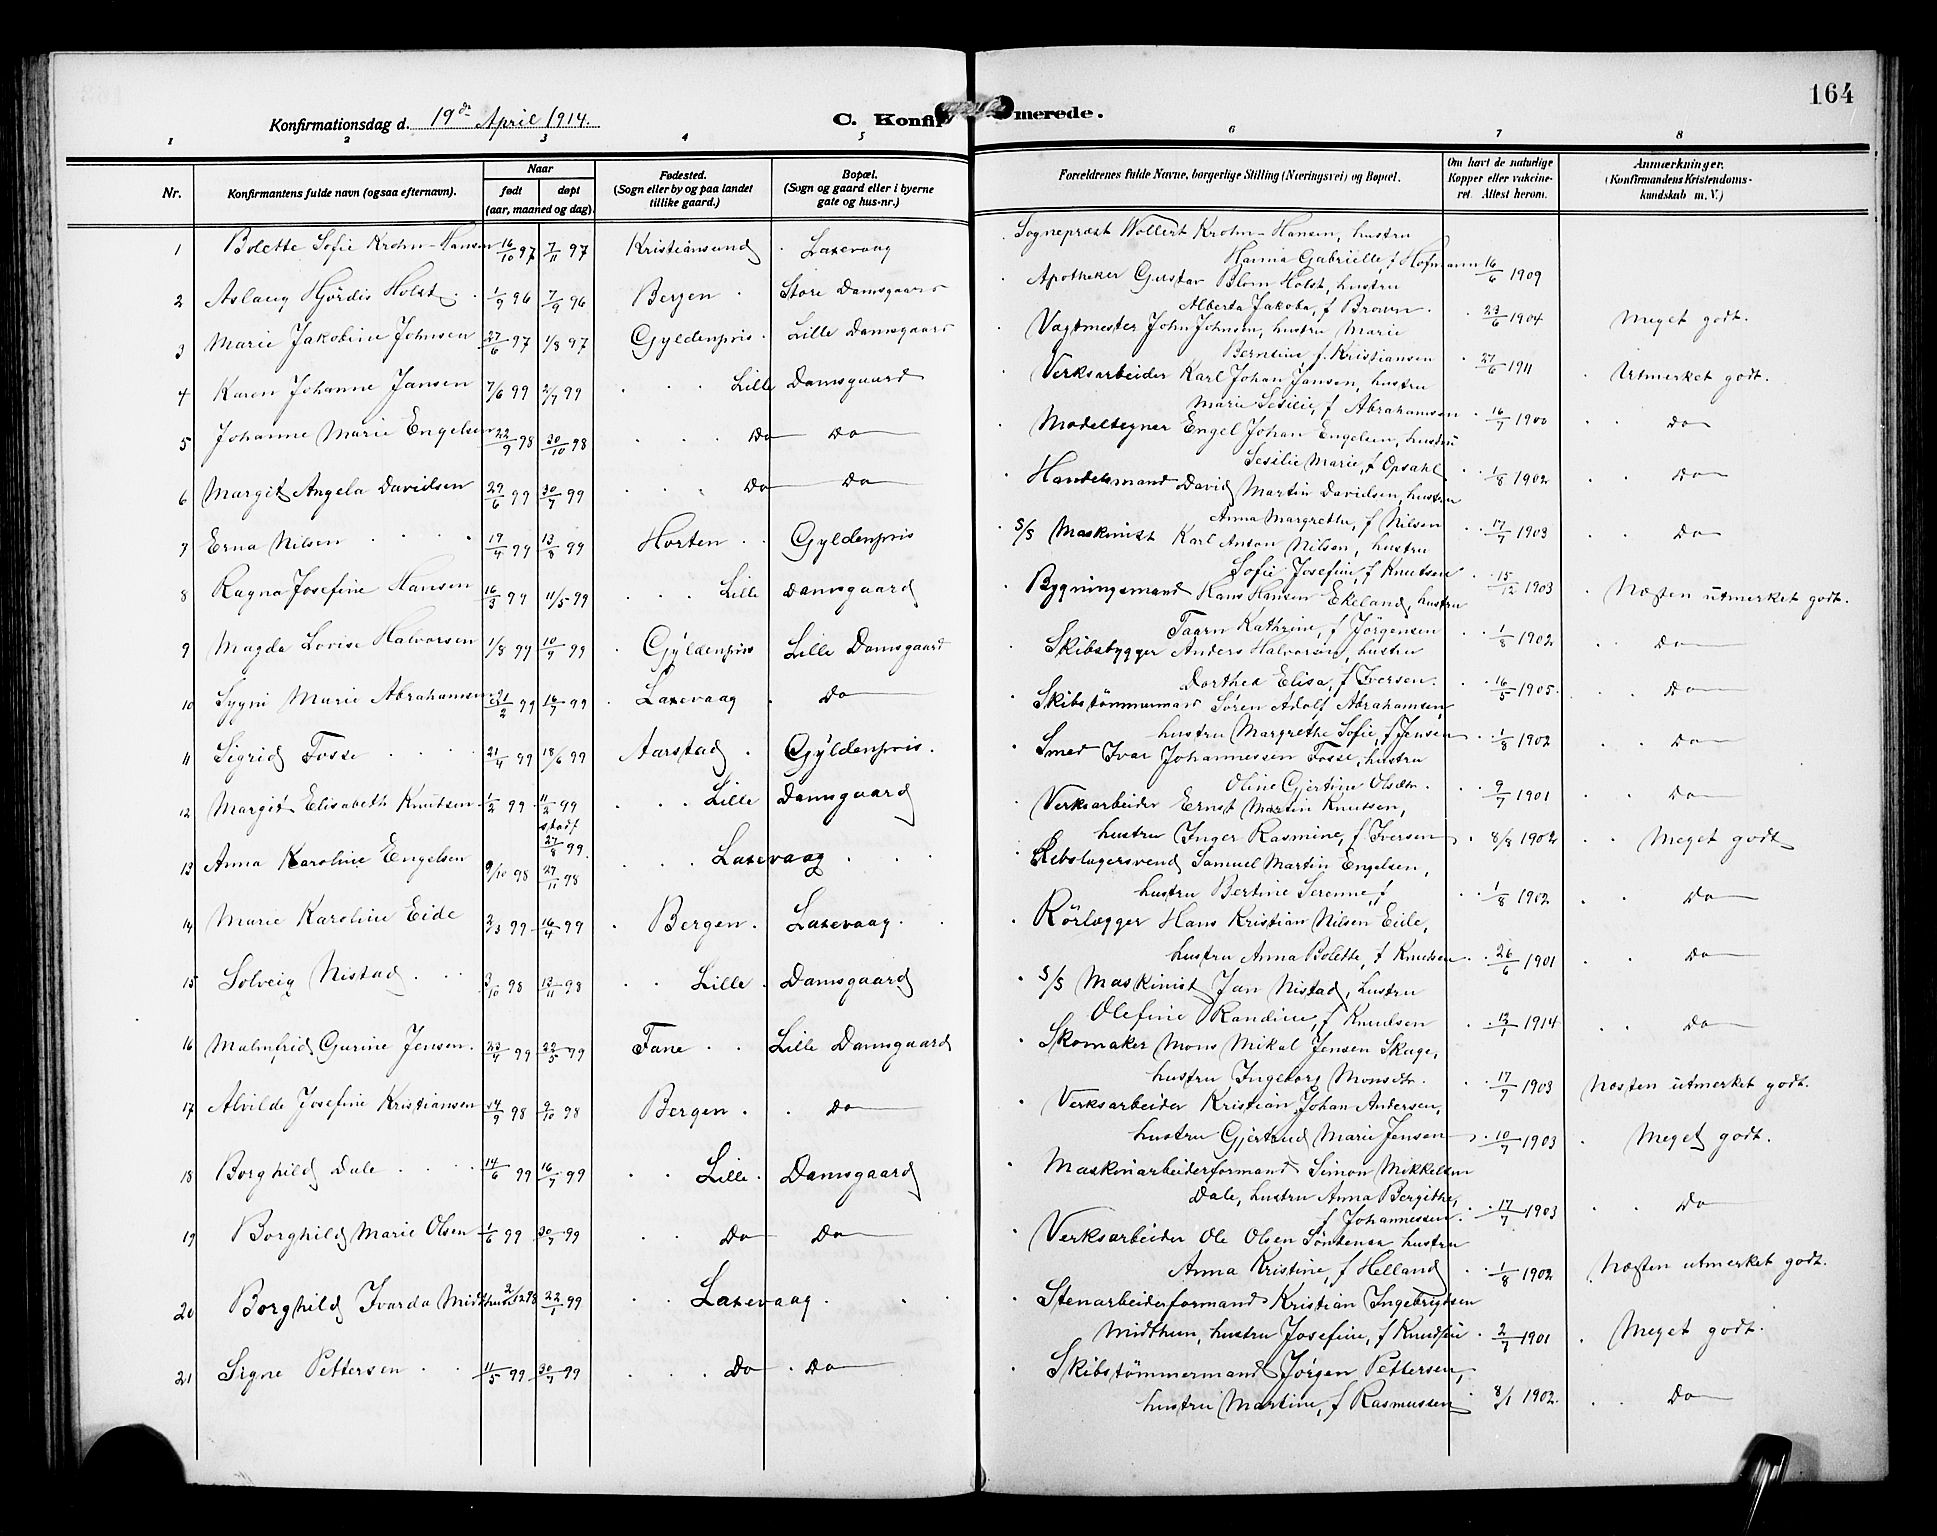 164
Konfirmationsdag d. 19de April 1914.
C. Konfirmerede.
1 2 3 4 5 6 7 8
Nr. Konfirmantens fulde navn (ogsaa efternavn). Naar født døpt (aar, maaned og dag). Fødested. (Sogn eller by og paa landet tillike gaard.) Bopæl. (Sogn og gaard eller i byerne gate og hus-nr.) Forældrenes fulde Navne, borgerlige Stilling (Næringsvei) og Bopæl. Om havt de naturlige Kopper eller vakcineret. Attest herom. Anmærkninger. (Konfirmandens Kristendomskundskab m. V.)
1 Bolette Sofie Krohn-Hansen 16/10 97 7/11 97 Kristiansund Laxevaag Sogneprest Wollert Krohn-Hansen, hustru
Hanna Gabrielle, f Hofmann 16/6 1909
2 Aslaug Hjördis Holst 1/9 96 7/9 96 Bergen Store Damsgaard Apotheker Gustav Blom Holst, hustru
Alberta Jakoba, f Brown. 23/6 1904 Meget godt.
3 Marie Jakobine Johnsen 27/6 97 1/8 97 Gyldenpris Lille Damsgaard Vagtmester John Johnsen, hustru Marie
Berntine f. Kristiansen 27/6 1911 Utmerket godt.
4 Karen Johanne Jansen 7/6 99 2/7 99 Lille Damsgaard Verksarbeider Karl Johan Jansen, hustru
Marie Sesilie, f Abrahamsen 16/7 1900 Do
5 Johanne Marie Engelsen 22/9 98 30/10 98 Do Do Modeltegner Engel Johan Engelsen, hustru
Sesilie Marie, f Opsahl 1/8 1902 Do
6 Margit Angela Davidsen 29/6 99 30/7 99 Do Do Handelsmand David Martin Davidsen, hustru
Anna Margrethe, f Nilsen 17/7 1903 Do
7 Erna Nilsen 19/4 99 13/8 99 Horten Gyldenpris S/S Maskinist Karl Anton Nilsen, hustru
Sofie Josefine, f Knutsen 15/12 1903 Næsten utmerket godt.
8 Ragna Josefine Hansen 16/3 99 11/5 99 Lille Damsgaard Bygningsmand Hans Hansen Ekeland, hustru
Taarn Kathrine, f Jörgensen 1/8 1902 Do
9 Magda Lovise Halvorsen 1/8 99 10/9 99 Gyldenpris Lille Damsgaard Skibsbygger Anders Halvorsen, hustru
Dorthea Elisa, f Iversen. 16/5 1905. Do
10 Sygni Marie Abrahamsen 21/2 99 16/7 99 Laxevaag Do Skibstömmermand Sören Adolf Abrahamsen,
hustru Margrethe Sofie, f Jensen 1/8 1902 Do
11 Sigrid Fosse 21/4 99 18/6 99 Aarstad Gyldenpris. Smed Ivar Johannessen Fosse, hustru
Oline Gjertine Olsdtr. 9/7 1901 Do
12 Margit Elisabeth Knutsen 1/2 99 11/2 99 stadf 27/8 99. Lille Damsgaard Verksarbeider Ernst Martin Knutsen,
hustru Inger Rasmine, f Iversen 8/8 1902 Meget godt
13 Anna Karoline Engelsen 9/10 98 27/11 98 Laxevaag Rebslagersvend Samuel Martin Engelsen,
hustru Bertine Serenne, f 1/8 1902 Do
14 Marie Karoline Eide 2/3 99 16/4 99 Bergen. Laxevaag. Rörlægger Hans Kristian Nilsen Eide,
hustru Anna Bolette, f Knudsen 26/6 1901 Do
15 Solveig Nistad 3/10 98 13/11 98 Lille Damsgaard S/S Maskinist Jan Nistad, hustru
Olefine Randine, f Knudsen 12/1 1914 Do
16 Malmfrid Gurine Jensen 23/4 99 22/5 99 Fane Lille Damsgaard Skomaker Mons Mikal Jensen Skage,
hustru Ingeborg Monsdtr. 17/9 1903 Næsten utmerket godt.
17 Alvilde Josefine Kristiansen 14/9 98 9/10 98 Bergen. Do Verksarbeider Kristian Johan Andersen,
hustru Gjertrud Marie Jensen 10/7 1903 Meget godt.
18 Borghild Dale 14/6 99 16/7 99 Lille Damsgaard Maskinarbeiderformand Simon Mikkelsen
Dale, hustru Anna Bergithe,
f Johannessen. 17/7 1903 Do
19 Borghild Marie Olsen 1/6 99 30/7 99 Do Do Verksarbeider Ole Olsen Söndenaa hustru
Anna Kristine, f Helland 1/8 1902 Næsten utmerket godt.
20 Borghild Ivarda Midthun 2/12 98 22/1 99 Laxevaag. Stenarbeiderformand Kristian Ingebrigtsen
Midthun, hustru Josefine, f Knudsen 2/7 1901 Meget godt.
21 Signe Pettersen 11/5 99 30/7 99 Do Do Skibstömmermand Jörgen Pettersen,
hustru Martine, f Rasmussen 8/1 1902. Do